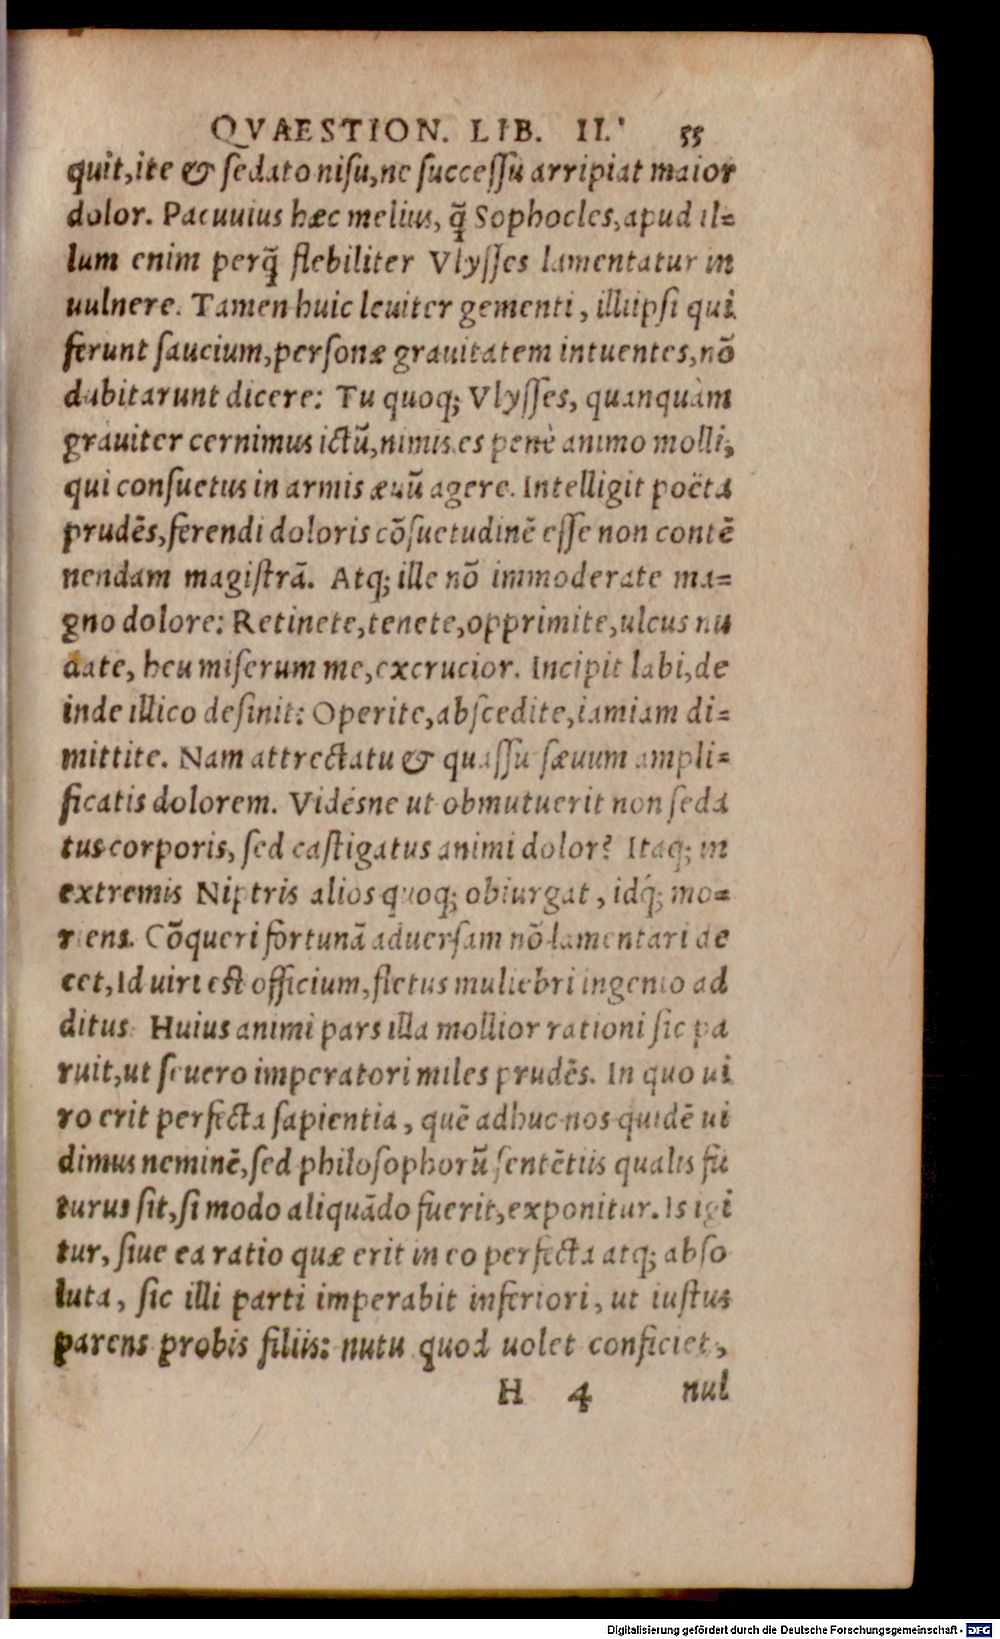 QVAESTION. LIB. II. 55
quit, ite & ſedato niſu, ne ſucceſſu arripiat maior
dolor. Pacuuius hæc melius, q̃ Sophocles, apud il=
lum enim perq̃ flebiliter Vlyſſes lamentatur in
uulnere. Tamen huic leuiter gementi, illi ipſi qui
ferunt ſaucium, perſonæ grauitatem intuentes, nõ
dubitarunt dicere: Tu quoq; Vlyſſes, quanquàm
grauiter cernimus ictũ, nimis es penè animo molli,
qui conſuetus in armis æuũ agere. Intelligit poëta
prudẽs, ferendi doloris cõſuetudinẽ eſſe non contẽ
nendam magiſtrã. Atq; ille nõ immoderate ma=
gno dolore: Retinete, tenete, opprimite, ulcus nu
date, heu miſerum me, excrucior. Incipit labi, de
inde illico deſinit: Operite, abſcedite, iamiam di=
mittite. Nam attrectatu & quaſſu ſæuum ampli=
ficatis dolorem. Vidésne ut obmutuerit non ſeda
tus corporis, ſed caſtigatus animi dolor? Itaq; in
extremis Niptris alios quoq; obiurgat, idq́; mo=
riens. Cõqueri fortunã aduerſam nõ lamentari de
cet, Id uiri eſt officium, fletus muliebri ingenio ad
ditus Huius animi pars illa mollior rationi ſic pa
ruit, ut ſeuero imperatori miles prudẽs. In quo ui
ro erit perfecta ſapientia, quẽ adhuc nos quidẽ ui
dimus neminẽ, ſed philoſophorũ ſentẽtiis qualis fu
turus ſit, ſi modo aliquãdo fuerit, exponitur. Is igi
tur, ſiue ea ratio quæ erit in eo perfecta atq; abſo
luta, ſic illi parti imperabit inferiori, ut iuſtus
parens probis filiis: nutu quod uolet conficiet,
H 4 nul
Digitalisierung gefördert durch die Deutsche Forschungsgemeinschaft - DFG